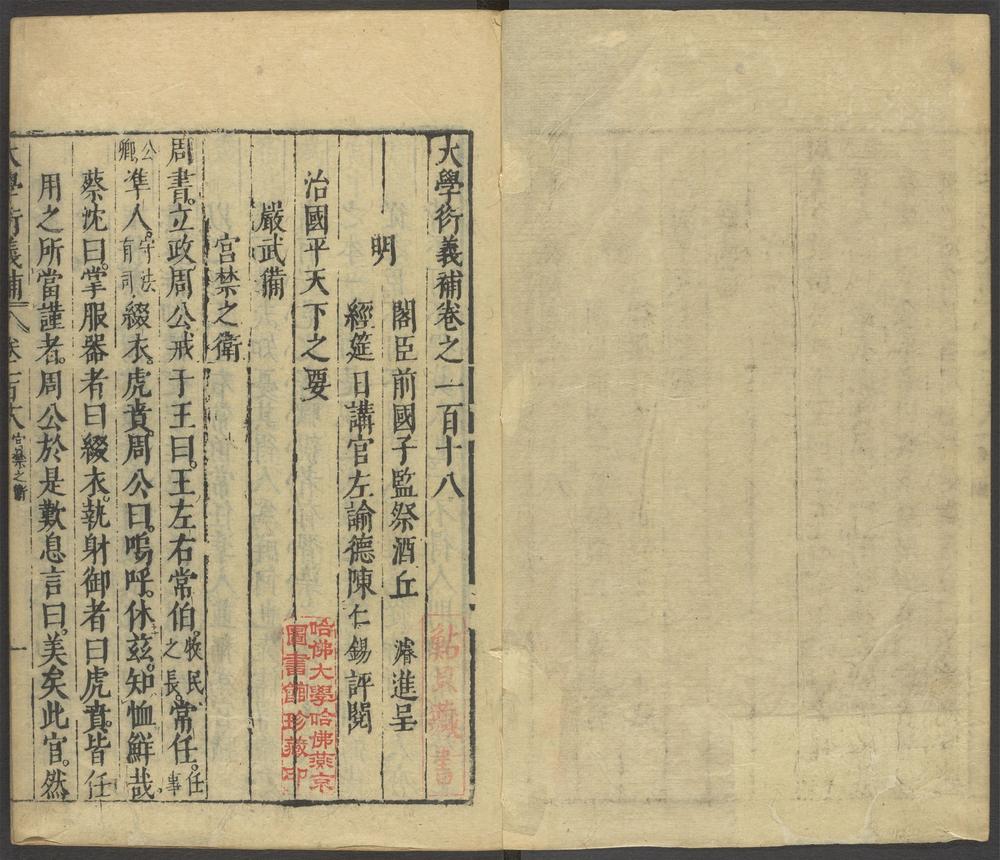 大學衍義補卷之一百十八
明
閣臣前國子監祭酒丘　濬進呈
經筵日講官左諭德陳仁錫評閱
治國平天下之要
嚴武備
宮禁之衛
周書立政周公戒于王曰。王左右常伯。牧民之長。常任。任事
公卿準人。守法有司綴衣。虎賁。周公曰。嗚呼。休茲。知恤鮮哉。
蔡沈曰。掌服器者曰綴衣。執射御者曰虎賁。皆任
用之所當謹者。周公於是歎息言曰。美矣此官。然
大學衍義補　宮禁之衛　一
哈佛大學哈佛燕京
圖書館珍藏印